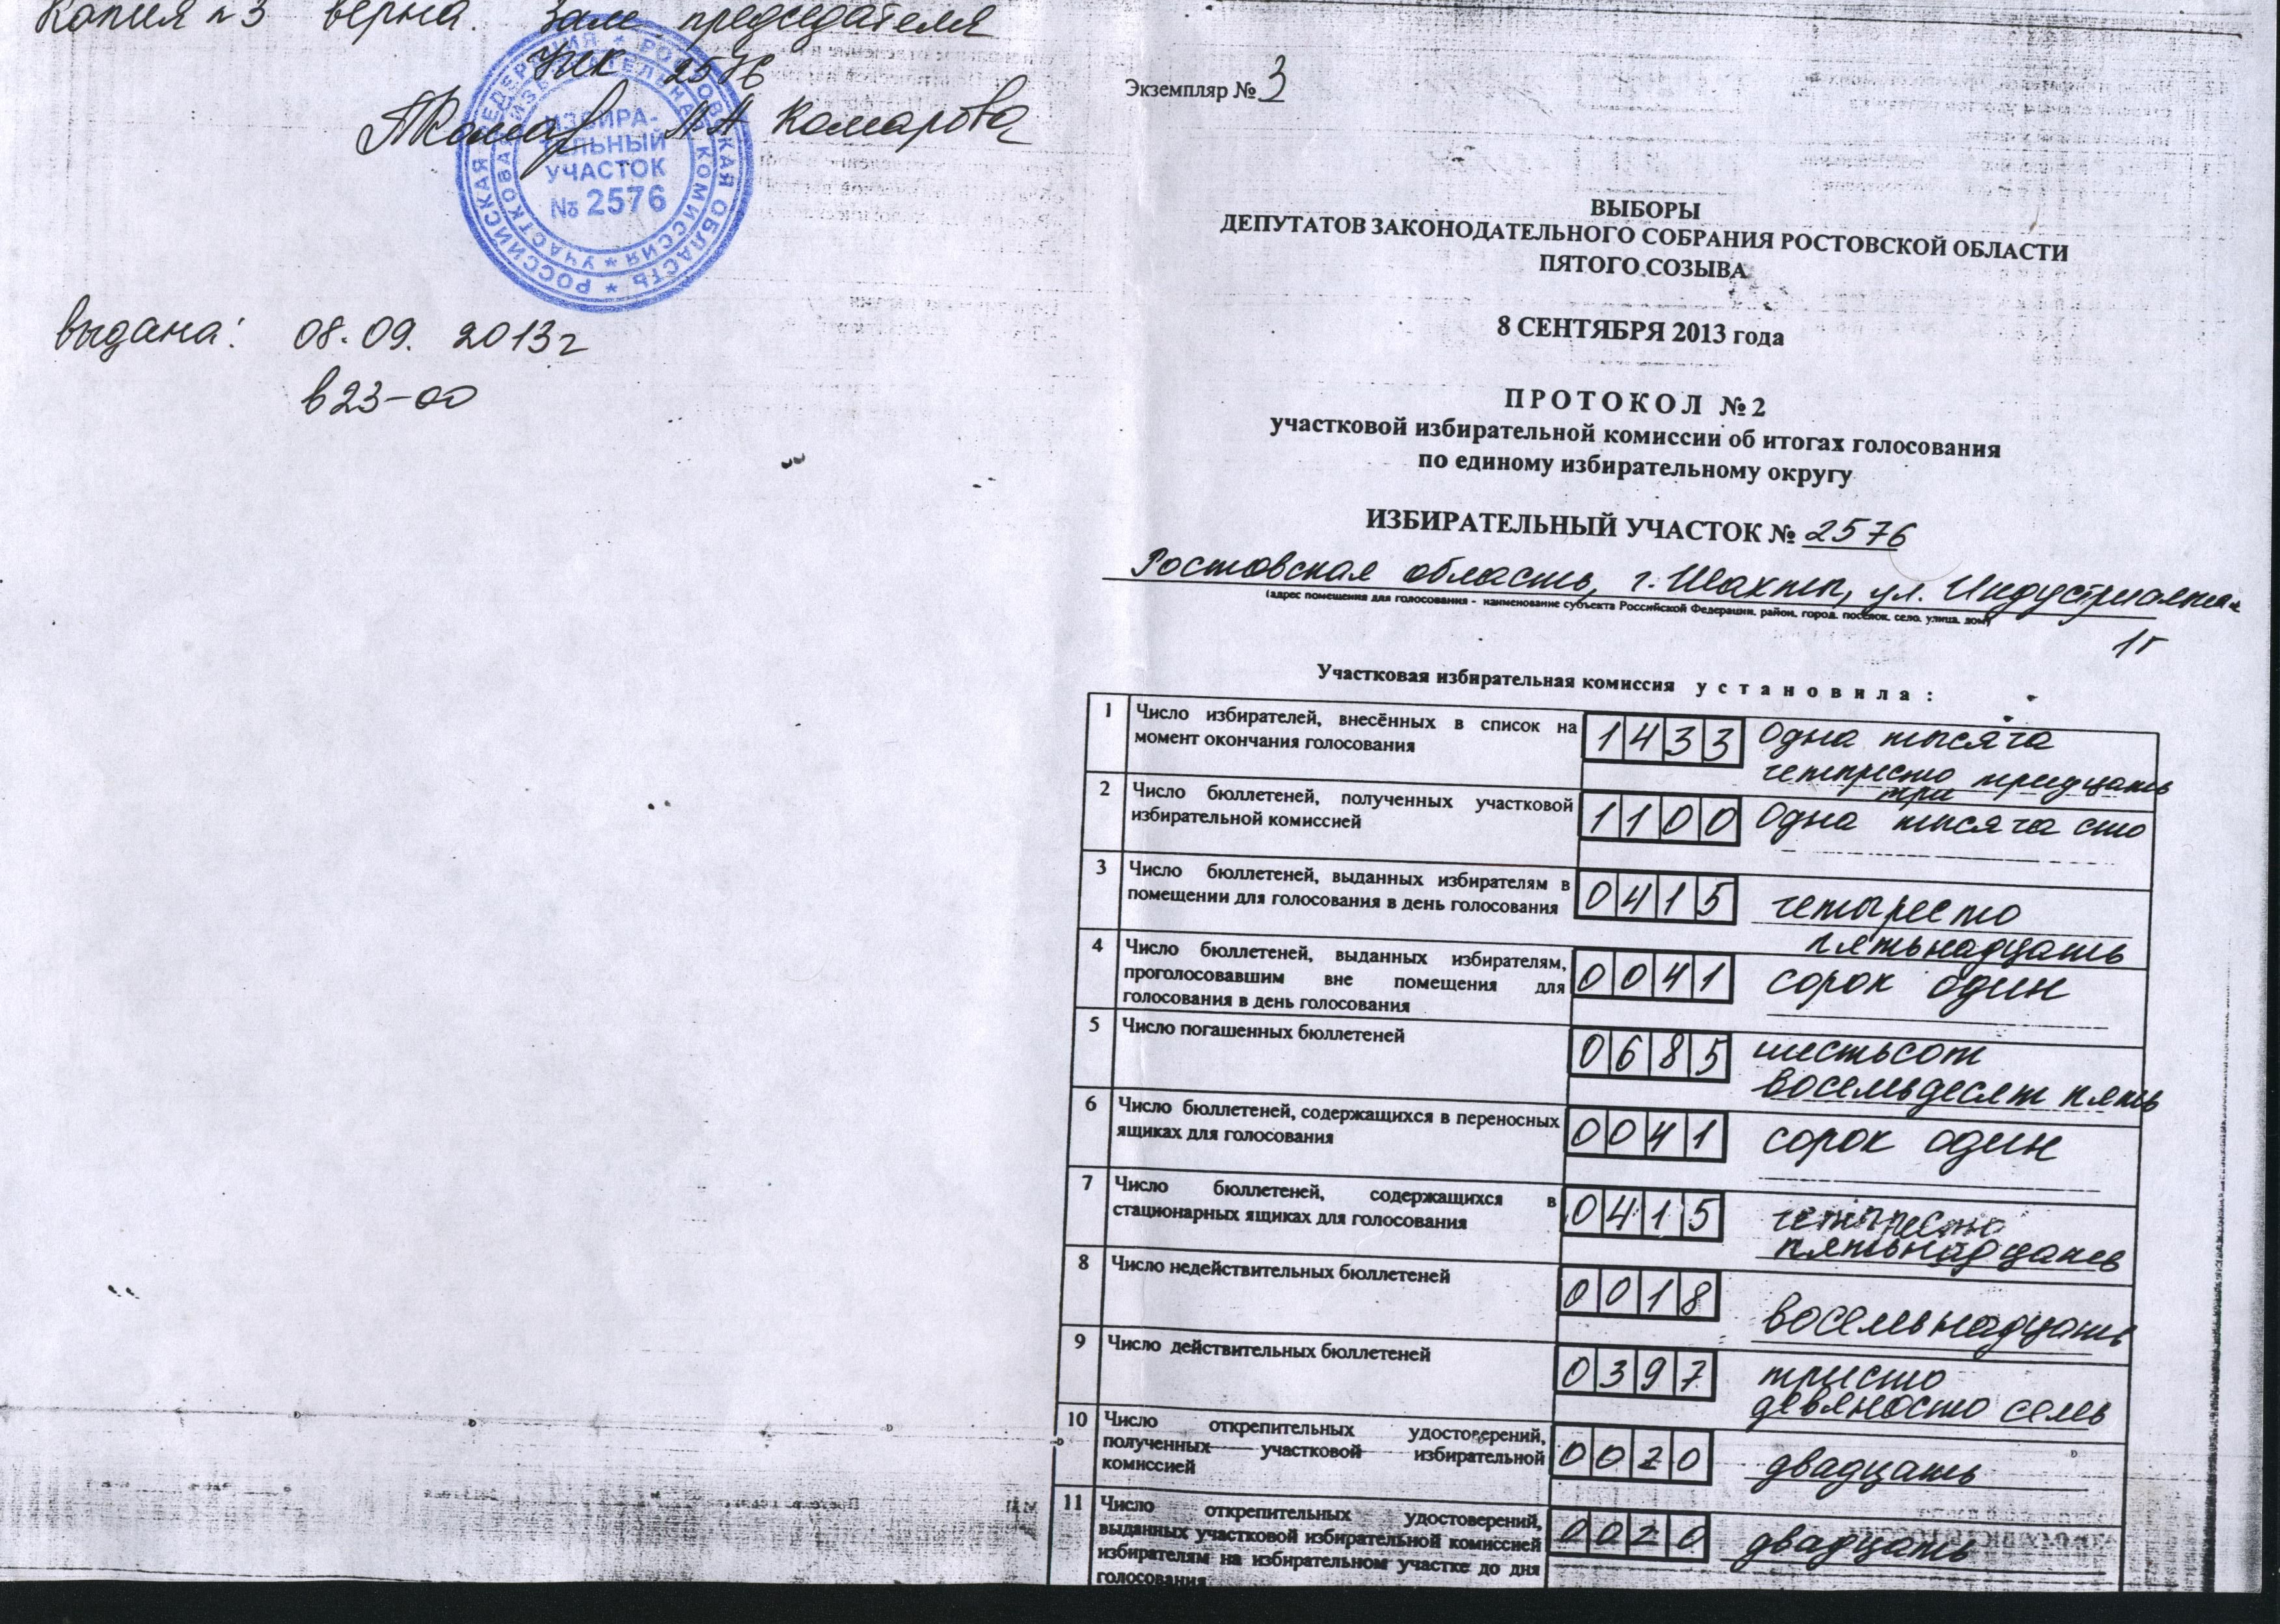 Копия n 3 верна. Зам председателя
УИК 2576
М А Комарова
РОССИЙСКАЯ ФЕДЕРАЦИЯ * РОСТОВСКАЯ ОБЛАСТЬ *
УЧАСТКОВАЯ ИЗБИРАТЕЛЬНАЯ КОМИССИЯ *
ИЗБИРА-
ТЕЛЬНЫЙ
УЧАСТОК
№ 2576
выдана: 08.09. 2013г
в 23-00
Экземпляр № 3
ВЫБОРЫ
ДЕПУТАТОВ ЗАКОНОДАТЕЛЬНОГО СОБРАНИЯ РОСТОВСКОЙ ОБЛАСТИ
ПЯТОГО СОЗЫВА
8 СЕНТЯБРЯ 2013 года
ПРОТОКОЛ № 2
участковой избирательной комиссии об итогах голосования
по единому избирательному округу
ИЗБИРАТЕЛЬНЫЙ УЧАСТОК № 2576
Ростовская область, г. Шахты, ул. Индустриальная
(адрес помещения для голосования - наименование субъекта Российской Федерации, район, город, поселок, село, улица, дом)
1г
Участковая избирательная комиссия установила:
1 Число избирателей, внесённых в список на 1433 Одна тысяча
момент окончания голосования четыресто тридцать
три
2 Число бюллетеней, полученных участковой 1100 Одна тысяча сто
избирательной комиссией
3 Число бюллетеней, выданных избирателям в 0415 четыресто
помещении для голосования в день голосования пятьнадцать
4 Число бюллетеней, выданных избирателям, 0041 сорок один
проголосовавшим вне помещения для
голосования в день голосования
5 Число погашенных бюллетеней 0685 шестьсот
восемьдесят пять
6 Число бюллетеней, содержащихся в переносных 0041 сорок один
ящиках для голосования
7 Число бюллетеней, содержащихся в 0415 четыресто
стационарных ящиках для голосования пятьнадцать
8 Число недействительных бюллетеней 0018 восемьнадцать
9 Число действительных бюллетеней 0397 тристо
девяносто семь
10 Число открепительных удостоверений, 0020 двадцать
полученных участковой избирательной
комиссией
11 Число открепительных удостоверений, 0020 двадцать
выданных участковой избирательной комиссией
избирателям на избирательном участке до дня
голосования